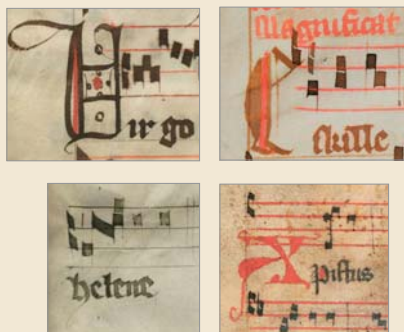 Virgo
Magnificat
Eskille
helene
Xpistus